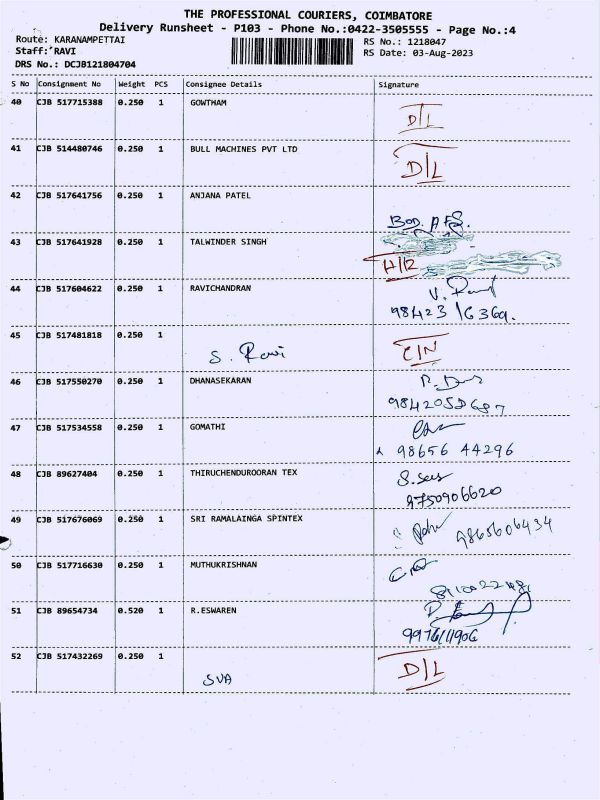 THE PROFESSIONAL COURIERS, COIMBATORE
Delivery Runsheet - P103 - Phone No.:0422-3505555 - Page No.:4
Route: KARANAMPETTAI
RS No.: 1218047
Staff: RAVI
RS Date: 03-Aug-2023
DRS No.: DCJB121804704
S No Consignment No Weight PCS Consignee Details Signature
40 CJB 517715388 0.250 1 GOWTHAM
D/L
41 CJB 514480746 0.250 1 BULL MACHINES PVT LTD
D/L
42 CJB 517641756 0.250 1 ANJANA PATEL
43 CJB 517641928 0.250 1 TALWINDER SINGH
44 CJB 517604622 0.250 1 RAVICHANDRAN
98423 16369.
45 CJB 517481818 0.250 1
S. Ravi
C/N
46 CJB 517550270 0.250 1 DHANASEKARAN
9842052687
47 CJB 517534558 0.250 1 GOMATHI
98656 44296
48 CJB 89627404 0.250 1 THIRUCHENDUROORAN TEX
9750906620
49 CJB 517676069 0.250 1 SRI RAMALAINGA SPINTEX
9865606434
50 CJB 517716630 0.250 1 MUTHUKRISHNAN
51 CJB 89654734 0.520 1 R.ESWAREN
9976111906
52 CJB 517432269 0.250 1
SVA
D/L